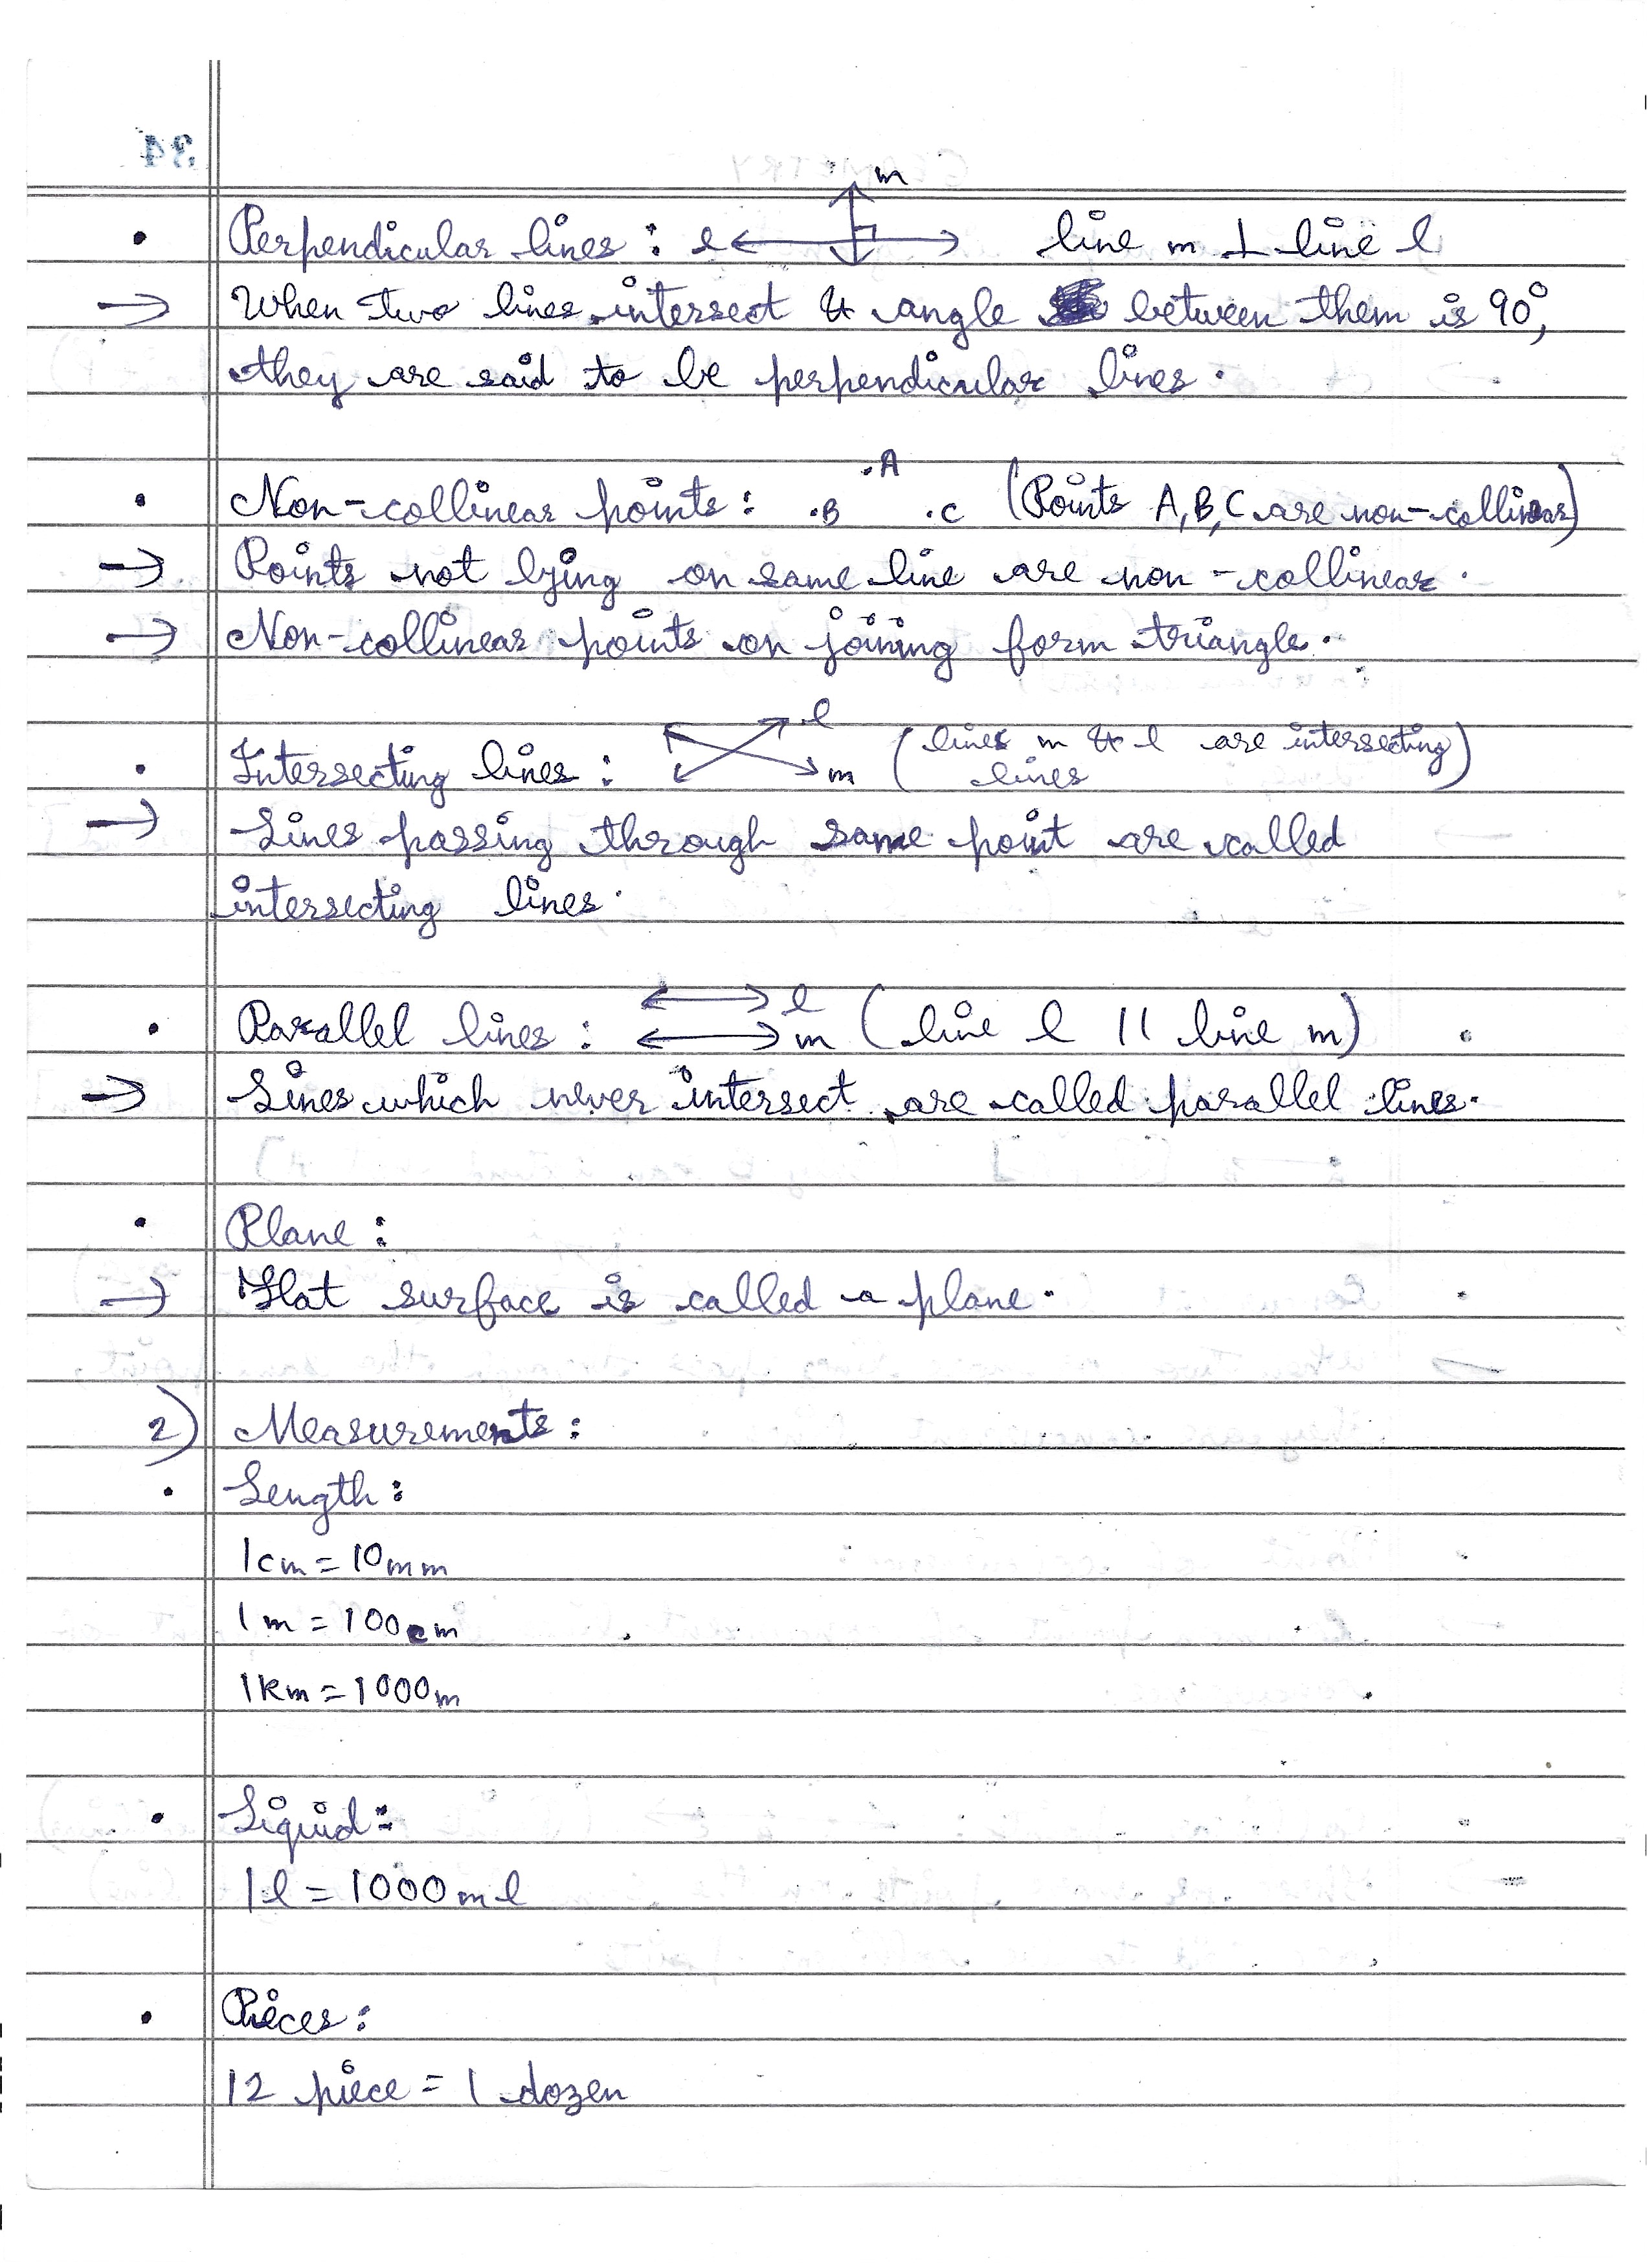 m
• Perpendicular lines : l line m ⊥ line l
→ When two lines intersect & angle between them is 90°,
they are said to be perpendicular lines.
.A
• Non-collinear points : .B .C (Points A, B, C are non-collinear)
→ Points not lying on same line are non-collinear.
→ Non-collinear points on joining form triangle.
• Intersecting lines : l m (lines m & l are intersecting
lines)
→ Lines passing through same point are called
intersecting lines.
l
• Parallel lines : m (line l || line m)
→ Lines which never intersect are called parallel lines.
• Plane :
→ Flat surface is called a plane.
2) Measurements :
• Length :
1cm = 10mm
1m = 100cm
1km = 1000m
• Liquid :
1l = 1000ml
• Pieces :
12 piece = 1 dozen